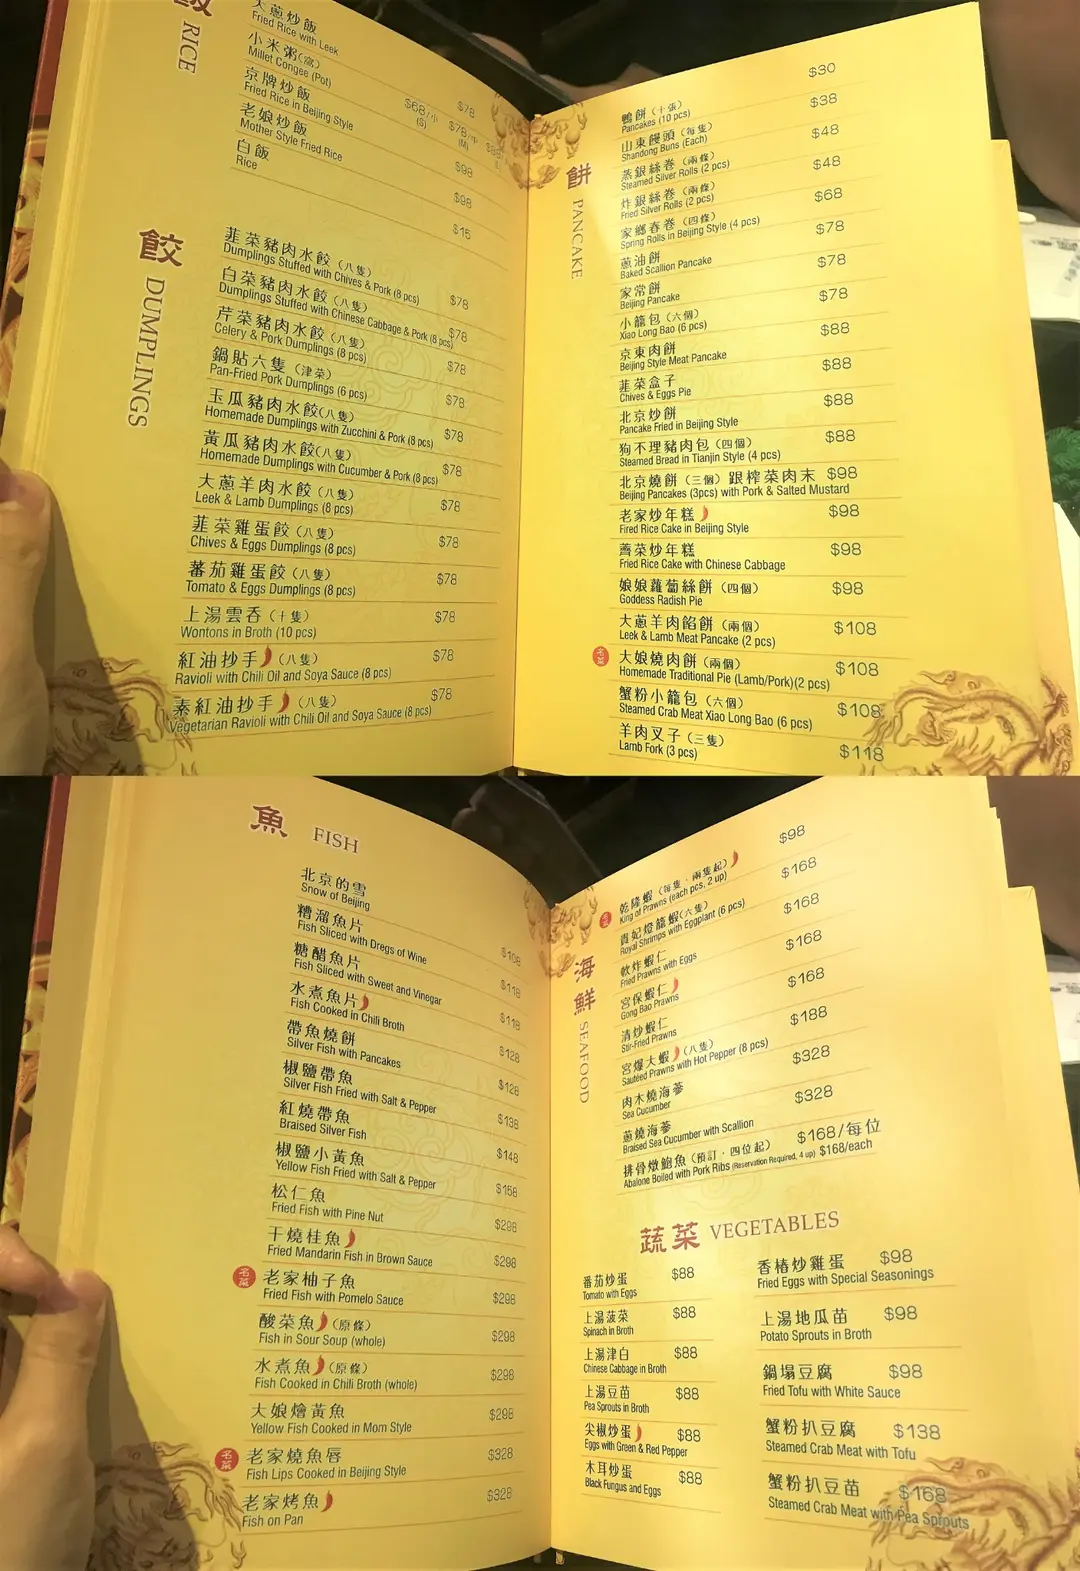 飯 RICE
大蔥炒飯
Fried Rice with Leek
$78
小米粥(窩)
Millet Congee (Pot)
$68/小(S) $78/中(M) $88
京牌炒飯
Fried Rice in Beijing Style
$98
老娘炒飯
Mother Style Fried Rice
$98
白飯
Rice
$15
餃 DUMPLINGS
韮菜豬肉水餃(八隻)
Dumplings Stuffed with Chives & Pork (8 pcs) $78
白菜豬肉水餃(八隻)
Dumplings Stuffed with Chinese Cabbage & Pork (8 pcs) $78
芹菜豬肉水餃(八隻)
Celery & Pork Dumplings (8 pcs) $78
鍋貼六隻(津菜)
Pan-Fried Pork Dumplings (6 pcs) $78
玉瓜豬肉水餃(八隻)
Homemade Dumplings with Zucchini & Pork (8 pcs) $78
黃瓜豬肉水餃(八隻)
Homemade Dumplings with Cucumber & Pork (8 pcs) $78
大蔥羊肉水餃(八隻)
Leek & Lamb Dumplings (8 pcs) $78
韮菜雞蛋餃(八隻)
Chives & Eggs Dumplings (8 pcs) $78
蕃茄雞蛋餃(八隻)
Tomato & Eggs Dumplings (8 pcs) $78
上湯雲吞(十隻) $78
Wontons in Broth (10 pcs)
紅油抄手(八隻) $78
Ravioli with Chili Oil and Soya Sauce (8 pcs)
素紅油抄手(八隻) $78
Vegetarian Ravioli with Chili Oil and Soya Sauce (8 pcs)
餅 PANCAKE
鴨餅(十張) $30
Pancakes (10 pcs)
山東饅頭(每隻) $38
Shandong Buns (Each)
蒸銀絲卷(兩條) $48
Steamed Silver Rolls (2 pcs)
炸銀絲卷(兩條) $48
Fried Silver Rolls (2 pcs)
家鄉春卷(四條) $68
Spring Rolls in Beijing Style (4 pcs)
蔥油餅 $78
Baked Scallion Pancake
家常餅 $78
Beijing Pancake
小籠包(六個) $78
Xiao Long Bao (6 pcs)
京東肉餅 $88
Beijing Style Meat Pancake
韮菜盒子 $88
Chives & Eggs Pie
北京炒餅 $88
Pancake Fried in Beijing Style
狗不理豬肉包(四個) $88
Steamed Bread in Tianjin Style (4 pcs)
北京燒餅(三個)跟榨菜肉末 $98
Beijing Pancakes (3pcs) with Pork & Salted Mustard
老家炒年糕 $98
Fired Rice Cake in Beijing Style
薺菜炒年糕 $98
Fried Rice Cake with Chinese Cabbage
娘娘蘿蔔絲餅(四個) $98
Goddess Radish Pie
大蔥羊肉餡餅(兩個) $108
Leek & Lamb Meat Pancake (2 pcs)
名菜 大娘燒肉餅(兩個) $108
Homemade Traditional Pie (Lamb/Pork)(2 pcs)
蟹粉小籠包(六個) $108
Steamed Crab Meat Xiao Long Bao (6 pcs)
羊肉叉子(三隻) $118
Lamb Fork (3 pcs)
魚 FISH
北京的雪
Snow of Beijing $108
糟溜魚片
Fish Sliced with Dregs of Wine $118
糖醋魚片
Fish Sliced with Sweet and Vinegar $118
水煮魚片
Fish Cooked in Chili Broth $128
帶魚燒餅
Silver Fish with Pancakes $128
椒鹽帶魚
Silver Fish Fried with Salt & Pepper $138
紅燒帶魚
Braised Silver Fish $148
椒鹽小黃魚
Yellow Fish Fried with Salt & Pepper $158
松仁魚
Fried Fish with Pine Nut $298
干燒桂魚
Fried Mandarin Fish in Brown Sauce $298
名菜 老家柚子魚
Fried Fish with Pomelo Sauce $298
酸菜魚(原條)
Fish in Sour Soup (whole) $298
水煮魚(原條)
Fish Cooked in Chili Broth (whole) $298
大娘燴黃魚
Yellow Fish Cooked in Mom Style $298
名菜 老家燒魚唇
Fish Lips Cooked in Beijing Style $328
老家烤魚
Fish on Pan $328
海鮮 SEAFOOD
名菜 乾隆蝦(每隻·兩隻起) $98
King of Prawns (each pcs, 2 up)
貴妃燈籠蝦(六隻) $168
Royal Shrimps with Eggplant (6 pcs)
軟炸蝦仁 $168
Fried Prawns with Eggs
宮保蝦仁 $168
Gong Bao Prawns
清炒蝦仁 $168
Stir-Fried Prawns
宮爆大蝦(八隻) $188
Sautéed Prawns with Hot Pepper (8 pcs)
肉木燒海蔘 $328
Sea Cucumber
蔥燒海蔘 $328
Braised Sea Cucumber with Scallion
排骨燉鮑魚(預訂·四位起) $168/每位
Abalone Boiled with Pork Ribs (Reservation Required, 4 up) $168/each
蔬菜 VEGETABLES
番茄炒蛋 $88
Tomato with Eggs
上湯菠菜 $88
Spinach in Broth
上湯津白 $88
Chinese Cabbage in Broth
上湯豆苗 $88
Pea Sprouts in Broth
尖椒炒蛋 $88
Eggs with Green & Red Pepper
木耳炒蛋 $88
Black Fungus and Eggs
香椿炒雞蛋 $98
Fried Eggs with Special Seasonings
上湯地瓜苗 $98
Potato Sprouts in Broth
鍋塌豆腐 $98
Fried Tofu with White Sauce
蟹粉扒豆腐 $138
Steamed Crab Meat with Tofu
蟹粉扒豆苗 $168
Steamed Crab Meat with Pea Sprouts